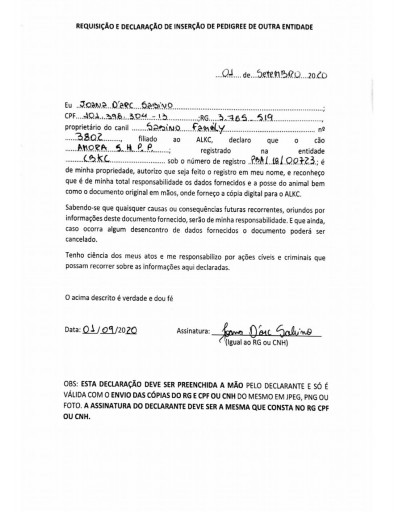 REQUISIÇÃO E DECLARAÇÃO DE INSERÇÃO DE PEDIGREE DE OUTRA ENTIDADE
01 de Setembro 2020
Eu JOANA D'ARC SABINO;
CPF 101.396.304-13; RG 3.765.519,
proprietário do canil SABINO FAMÍLY nº
3802, filiado ao ALKC, declaro que o cão
AMORA S.H.P.P.; registrado na entidade
CBKC sob o número de registro PBA/18/00723; é
de minha propriedade, autorizo que seja feito o registro em meu nome, e reconheço
que é de minha total responsabilidade os dados fornecidos e a posse do animal bem
como o documento original em mãos, onde forneço a cópia digital para o ALKC.
Sabendo-se que quaisquer causas ou consequências futuras recorrentes, oriundos por
informações deste documento fornecido, serão de minha responsabilidade. E que ainda,
caso ocorra algum desencontro de dados fornecidos o documento poderá ser
cancelado.
Tenho ciência dos meus atos e me responsabilizo por ações cíveis e criminais que
possam recorrer sobre as informações aqui declaradas.
O acima descrito é verdade e dou fé
Data: 01/09/2020 Assinatura: Joana D'arc Sabino
(Igual ao RG ou CNH)
OBS: ESTA DECLARAÇÃO DEVE SER PREENCHIDA A MÃO PELO DECLARANTE E SÓ É
VÁLIDA COM O ENVIO DAS CÓPIAS DO RG E CPF OU CNH DO MESMO EM JPEG, PNG OU
FOTO. A ASSINATURA DO DECLARANTE DEVE SER A MESMA QUE CONSTA NO RG CPF
OU CNH.